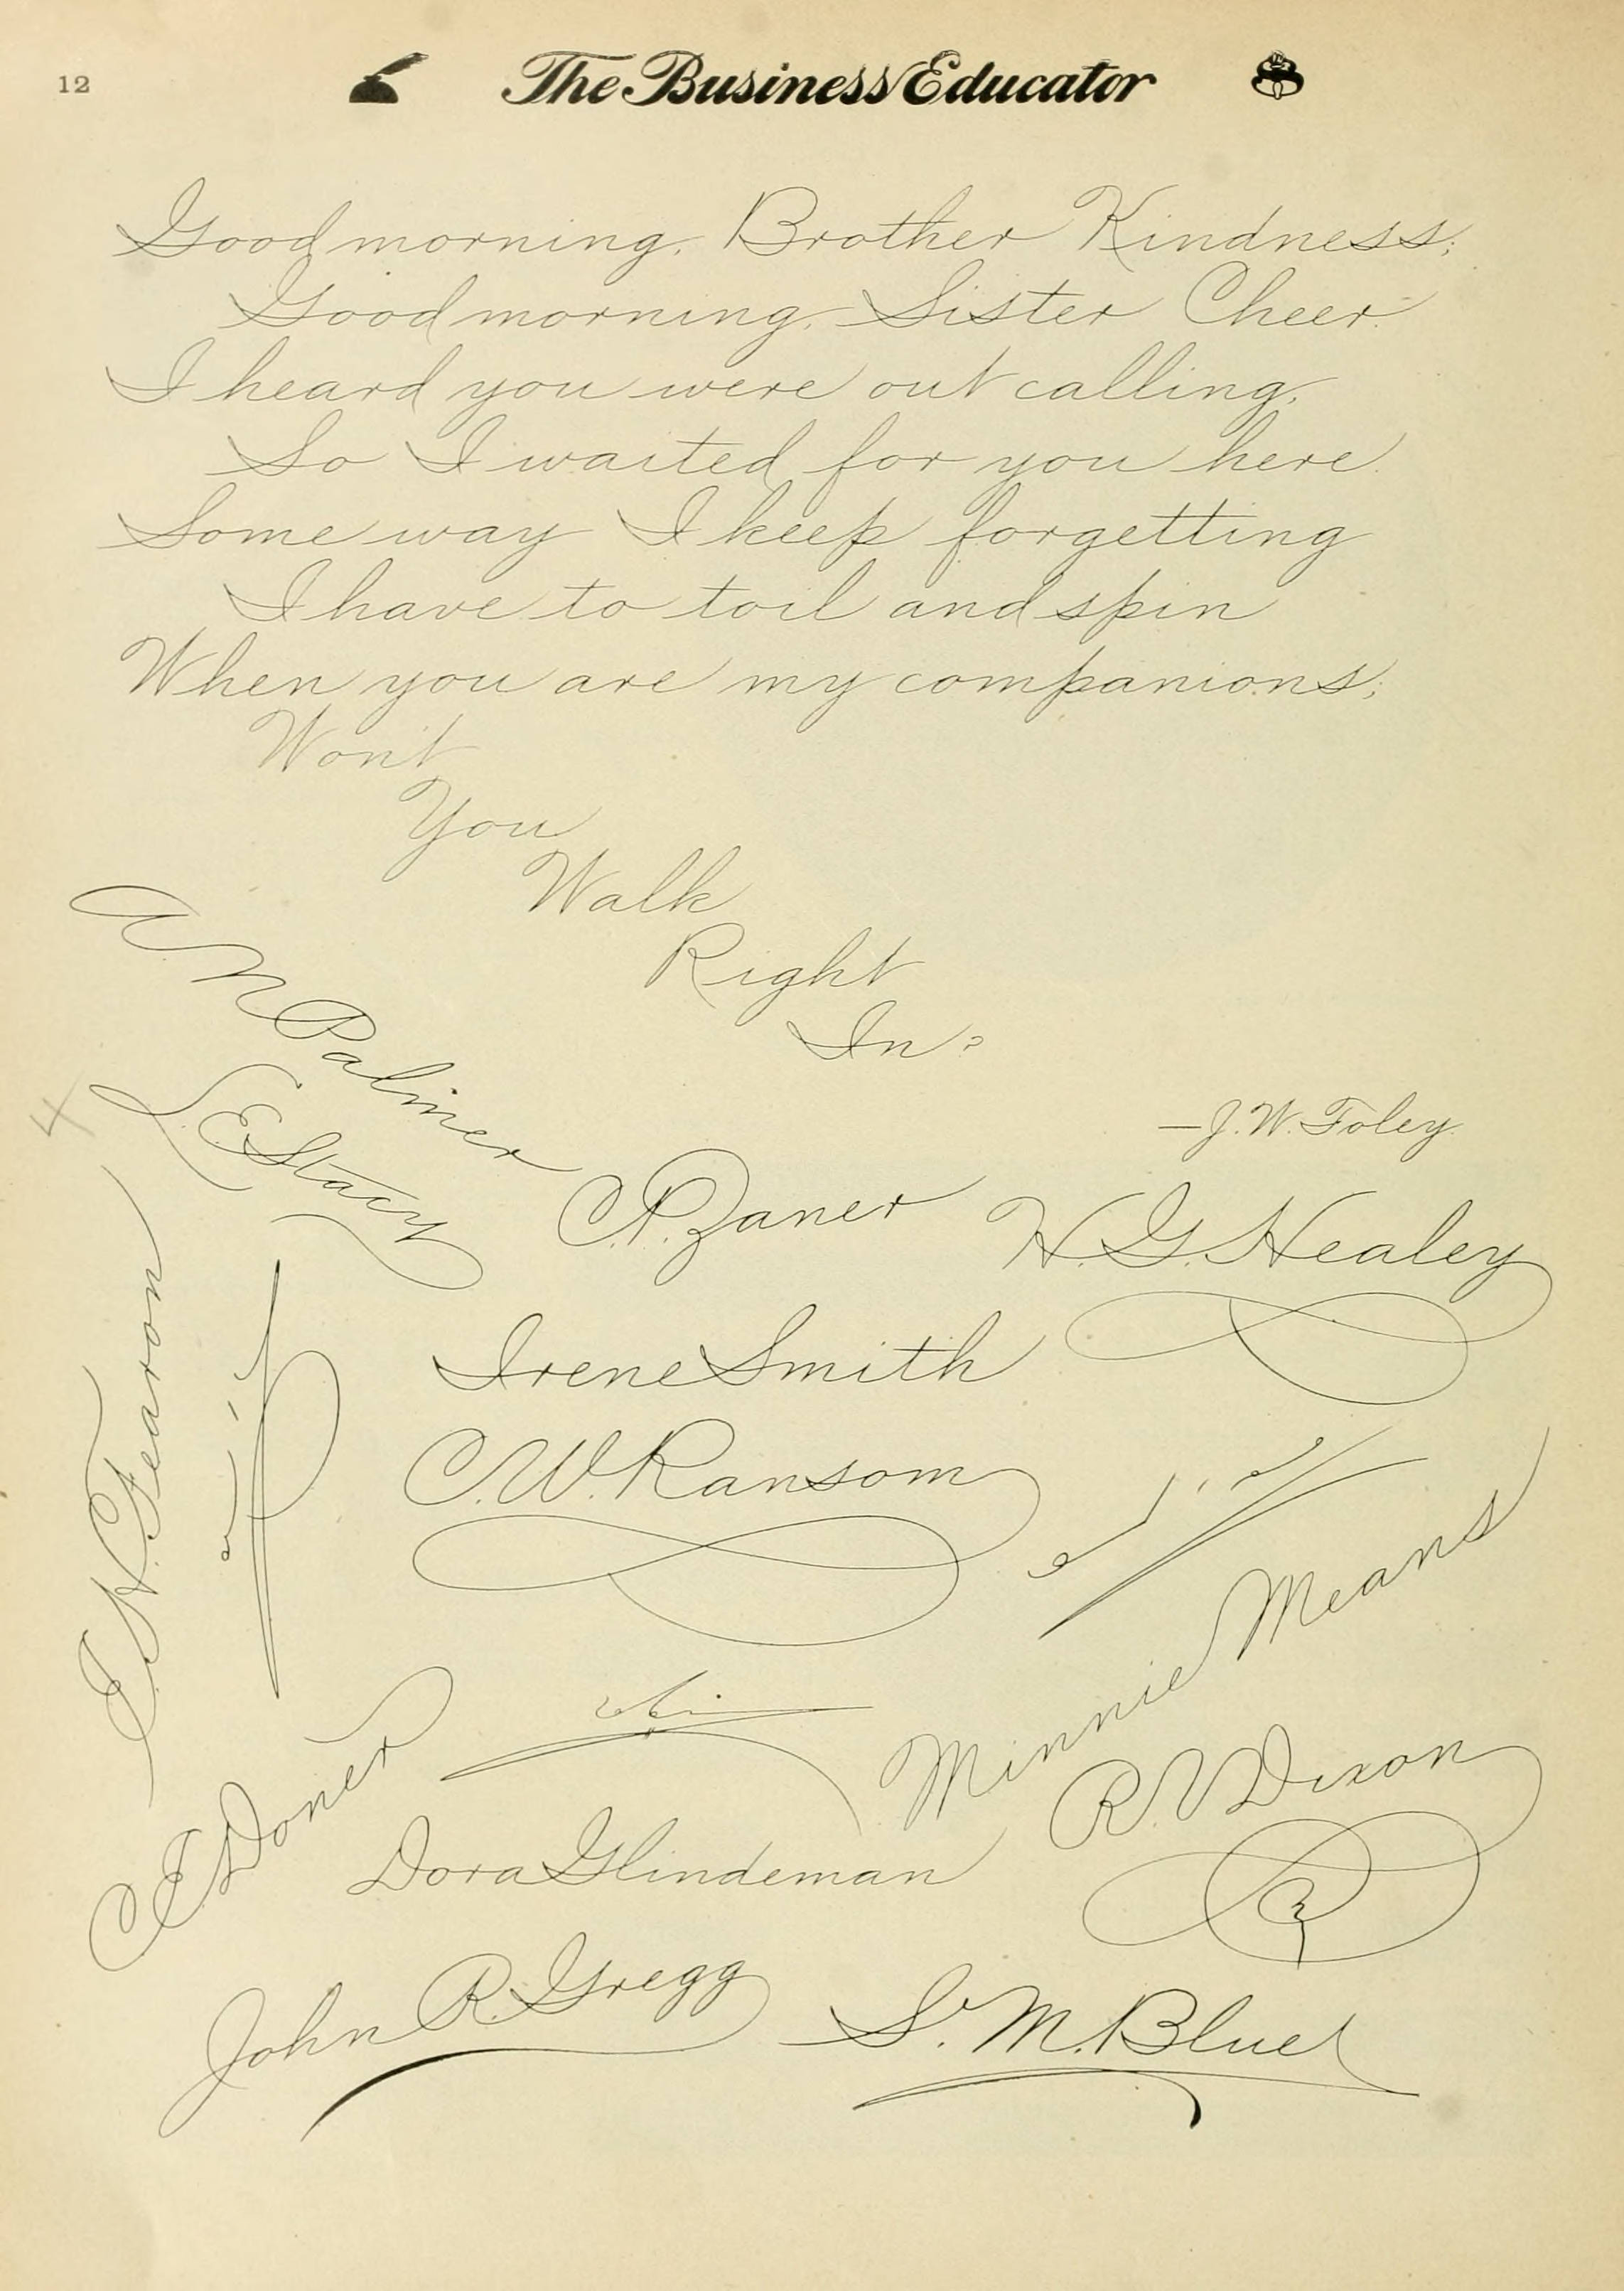 12
The Business Educator
Good morning, Brother Kindness;
Good morning, Sister Cheer.
I heard you were out calling,
So I waited for you here.
Some way I keep forgetting
I have to toil and spin
When you are my companions;
Won't
You
Walk
Right
In?
—J. W. Foley.
A N Palmer
L. E. Stacy
C. P. Zaner
H. G. Healey
4
E. H. Fearon
Irene Smith
C. W. Ransom
Minnie Means
C E Doner
R. V. Dixon
Dora Glindeman
John R. Gregg
S. M. Blue